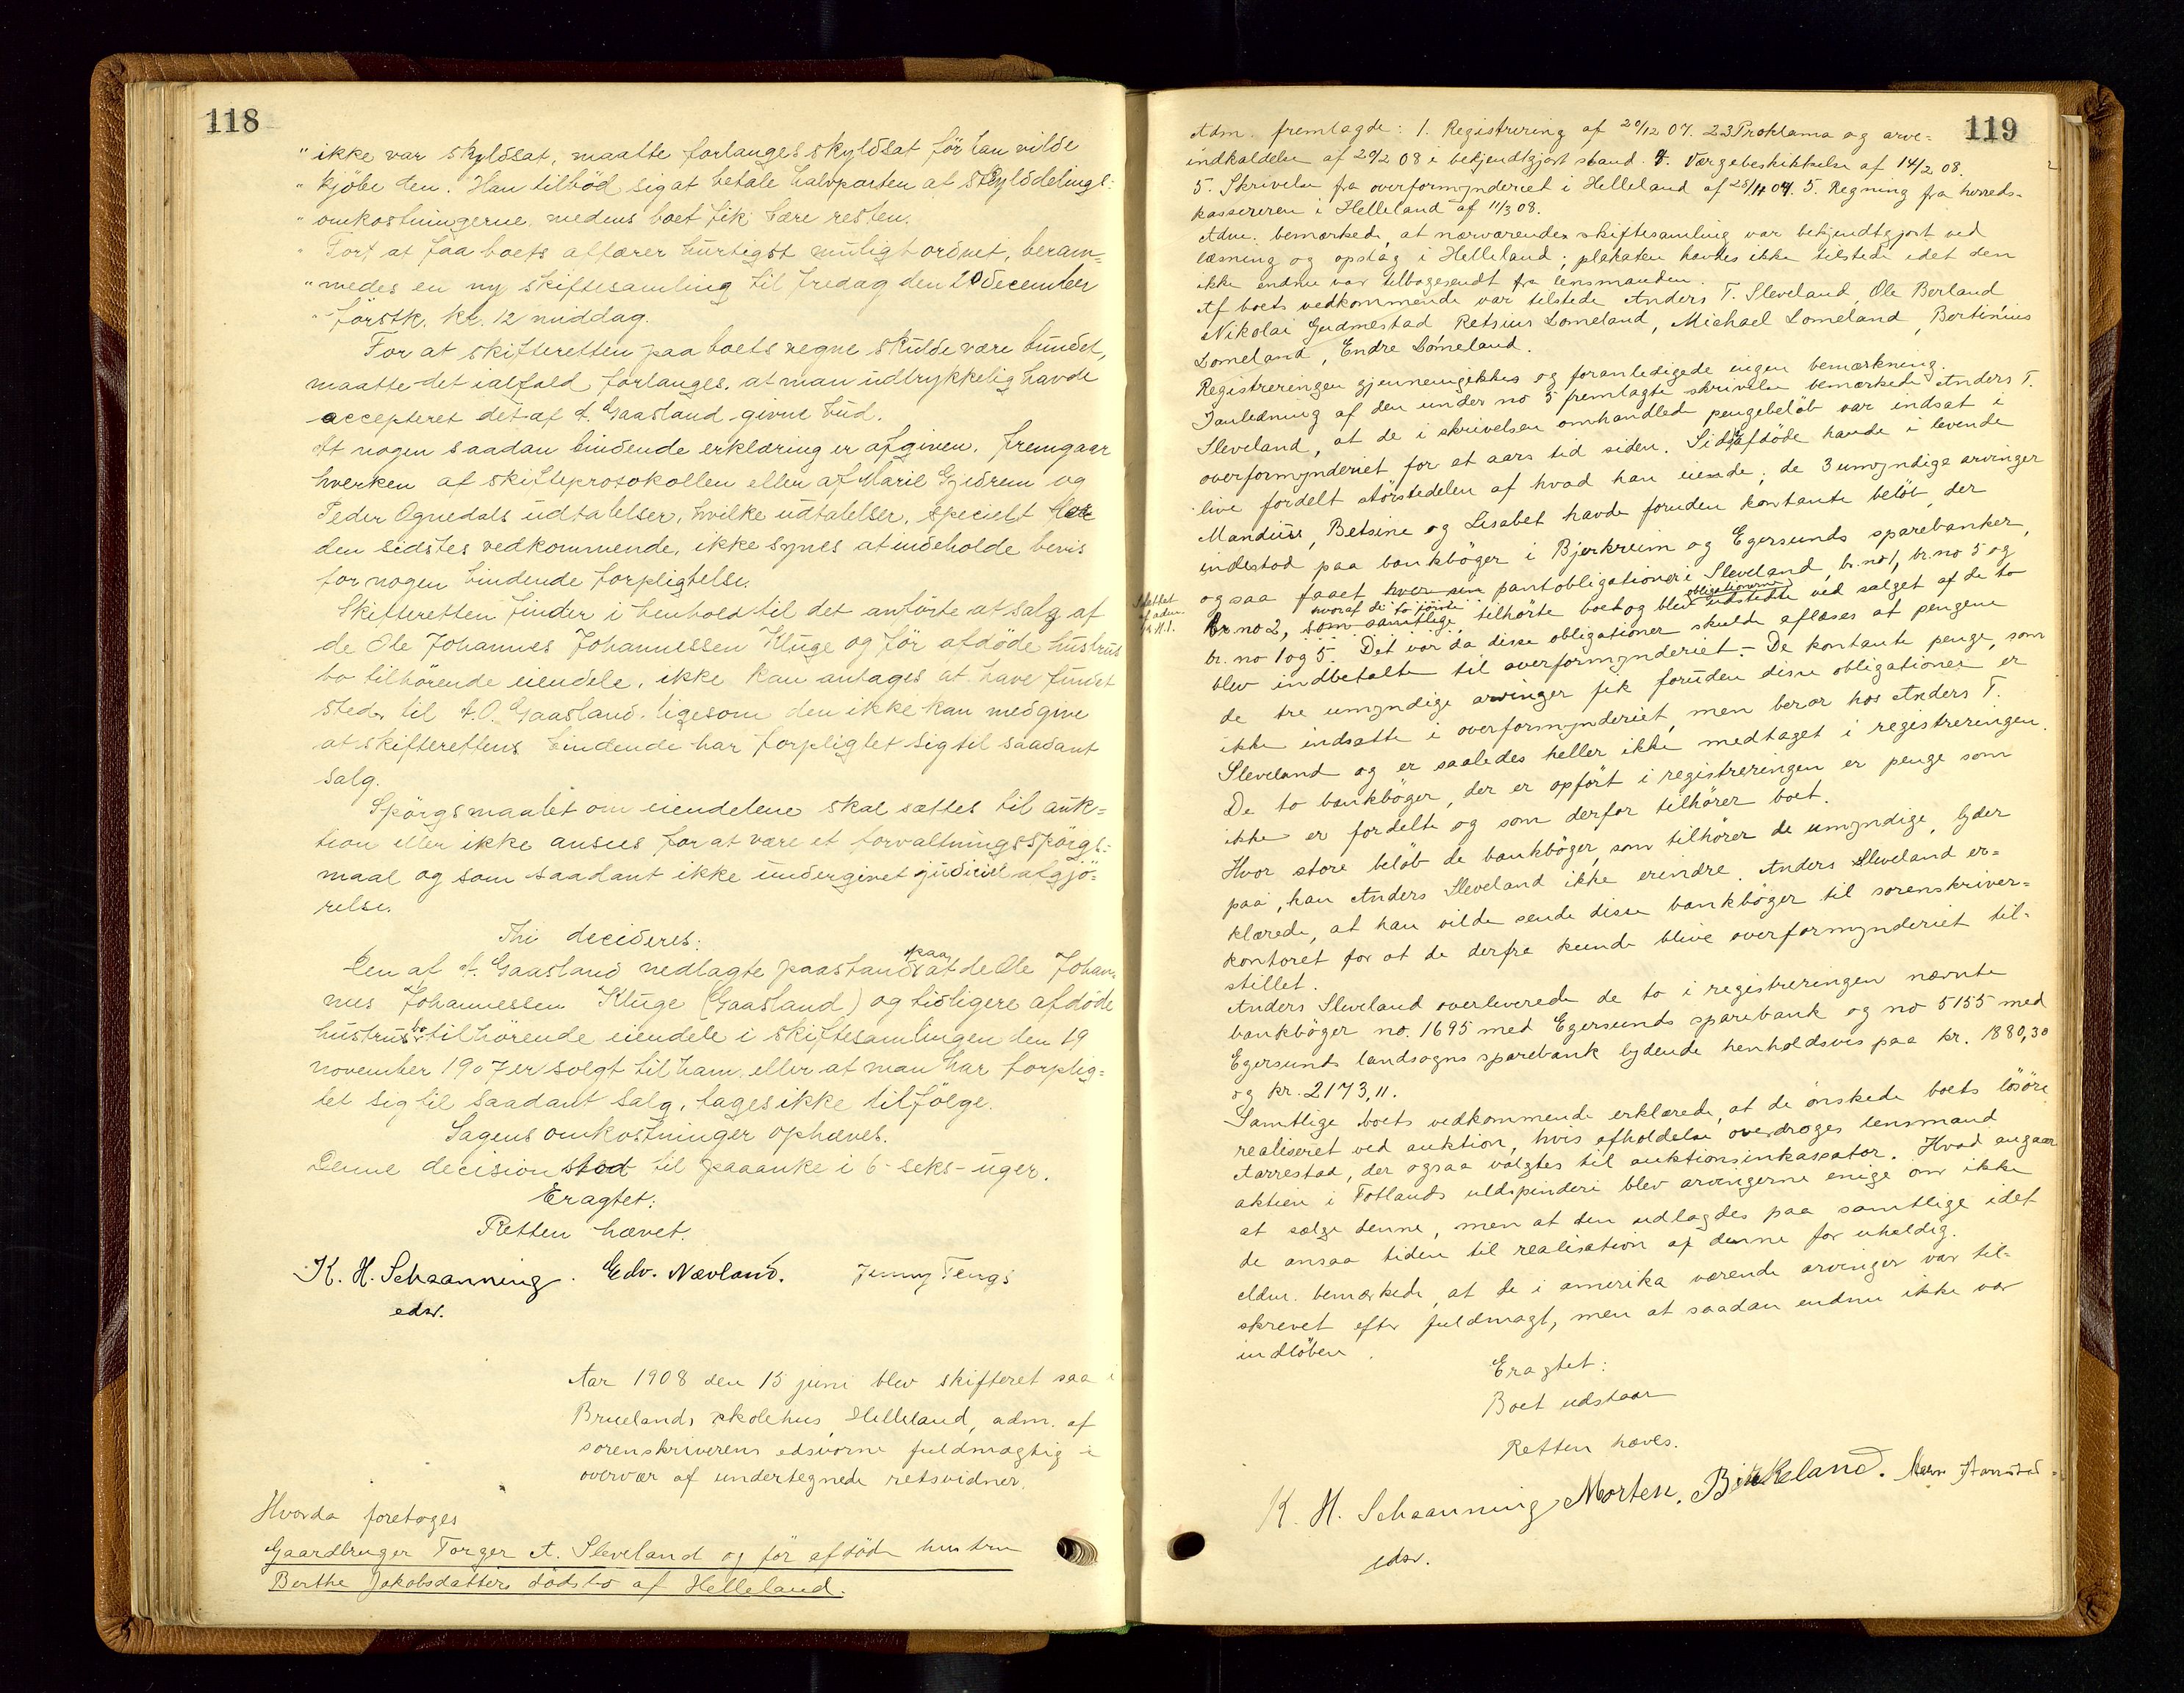 118
" ikke var skyldsat, maatte forlanges skyldsat før han vilde
" kjøbe den. Han tilbød sig at betale halvparten at skylddelings=
" omkostningerne, medens boet fik bære resten.
" Fort at faa boets affærer hurtigst muligt ordnet, beram=
" medes en ny skiftesamling til fredag den 20 december
" førstk. kl. 12 middag.
For at skifteretten paa boets vegne skulde være bundet,
maatte det ialfald forlanges, at man udtrykkelig havde
accepteret det af A. Gaasland givne bud.
At nogen saadan bindende erklæring er afgiven, fremgaar
hverken af skifteprotokollen eller af Marie Gjedrem og
Peder Ognedals udtalelser, hvilke udtalelser, specielt for
den sidstes vedkommende, ikke synes at indeholde bevis
for nogen bindende forpligtelse.
Skifteretten finder i henhold til det anførte at salg af
de Ole Johannes Johannessen Kluge og før afdøde hustrus
bo tilhørende eiendele, ikke kan antages at have fundet
sted til A. O. Gaasland, ligesom den ikke kan medgive
at skifterettens bindende har forpligtet sig til saadant
salg.
Spørgsmaalet om eiendelene skal sættes til auk=
tion eller ikke ansees for at være et forvaltningsspørgs=
maal og som saadant ikke undergivet judiciel afgjø=
relse.
Thi decideres:
Den af A. Gaasland nedlagte paastand paa at de Ole Johan=
nes Johannessen Kluge (Gaasland) og tidligere afdøde
hustrus bo tilhørende eiendele i skiftesamlingen den 19
november 1907 er solgt til ham, eller at man har forplig=
tet sig til saadant salg, tages ikke tilfølge.
Sagens omkostninger ophæves.
Denne decision stod til paaanke i 6-seks-uger.
Eragtet:
Retten hævet.
K. H. Schaanning. Edv. Nævland. Jenny Tengs
edsv.
Aar 1908 den 15 juni blev skifteret sat i
Bruelands skolehus, Helleland, adm. af
sorenskriverens edsvorne fuldmægtig i
overvær af undertegnede retsvidner.
Hvorda foretoges
Gaardbruger Torger A. Sleveland og før afdøde hustru
Berthe Jakobsdatters dødsbo af Helleland.
119
Adm. fremlagde: 1. Registrering af 20/12 07. 2-3 Proklama og arve=
indkaldelse af 29/2 08 i bekjendtgjort stand. 4. Værgebeskikkelse af 14/2 08.
5. Skrivelse fra overformynderiet i Helleland af 28/11 07. 5. Regning fra herreds=
kassereren i Helleland af 11/3 08.
Adm. bemærkede, at nærværende skiftesamling var bekjendtgjort ved
læsning og opslag i Helleland; plakaten havdes ikke tilstede idet den
ikke endnu var tilbagesendt fra lensmanden.
Af boets vedkommende var tilstede Anders T. Sleveland, Ole Berland,
Nikolai Gudmestad Retsius Lomeland, Michael Lomeland, Bertinius
Lomeland, Endre Lomeland.
Registreringen gjennemgikkes og foranledigede ingen bemærkning.
I anledning af den under no 5 fremlagte skrivelse bemærkede Anders T.
Sleveland, at de i skrivelsen omhandlede pengebeløb var indsat i
overformynderiet for et aars tid siden. Sidstafdøde havde i levende
live fordelt størstedelen af hvad han eiede; de 3 umyndige arvinger
Mandius, Betsine og Lisabet havde foruden kontante beløb, der
indestod paa bankbøger i Bjerkreim og Egersunds sparebanker,
ogsaa faaet hver sin pantobligationer i Sleveland, br. no 1, br. no 5 og
Slettet
af adm.
br no 2, som samtlige hvoraf de to første tilhørte boet og blev obligationerne udstedte ved salget af de to
br. no 1 og 5. Det var da disse obligationer skulde aflæses at pengene
blev indbetalte til overformynderiet. – De kontante penge, som
de tre umyndige arvinger fik foruden disse obligationer er
ikke indsatte i overformynderiet, men beror hos Anders T.
Sleveland og er saaledes heller ikke medtaget i registreringen.
De to bankbøger, der er opført i registreringen er penge som
ikke er fordelte og som derfor tilhører boet.
Hvor store beløb de bankbøger, som tilhører de umyndige, lyder
paa, kan Anders Sleveland ikke erindre. Anders Sleveland er=
klærede, at han vilde sende disse bankbøger til sorenskriver=
kontoret for at de derfra kunde blive overformynderiet til=
stillet.
Anders Sleveland overleverede de to i registreringen nævnte
bankbøger no. 1695 med Egersunds sparebank og no 5155 med
Egersunds landsogns sparebank lydende henholdsvis paa kr. 1880,30
og kr. 2173,11.
Samtlige boets vedkommende erklærede, at de ønskede boets løsøre
realiseret ved auktion, hvis afholdelse overdroges lensmand
Aarrestad, der ogsaa valgtes til auktionsinkassator. Hvad angaar
aktien i Fotlands uldspinderi blev arvingerne enige om ikke
at sælge denne, men at den udlagdes paa samtlige idet
de ansaa tiden til realisation af denne for uheldig.
Adm. bemærkede, at de i amerika værende arvinger var til=
skrevet efter fuldmagt, men at saadan endnu ikke var
indløben.
Eragtet:
Boet udstaar
Retten hæves.
K. H. Schaanning Morten. Birkeland.
edsv.